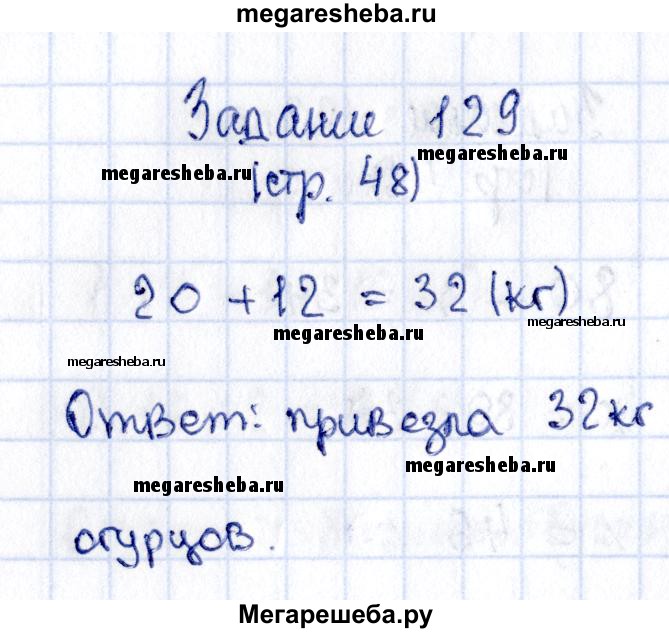 megaresheba.ru
Задание 129
megaresheba.ru
megaresheba.ru
(стр. 48)
20 + 12 = 32 (кг)
megaresheba.ru
megaresheba.ru
megaresheba.ru
Ответ: привезла 32 кг
megaresheba.ru
megaresheba.ru
огурцов.
Мегарешеба.ру